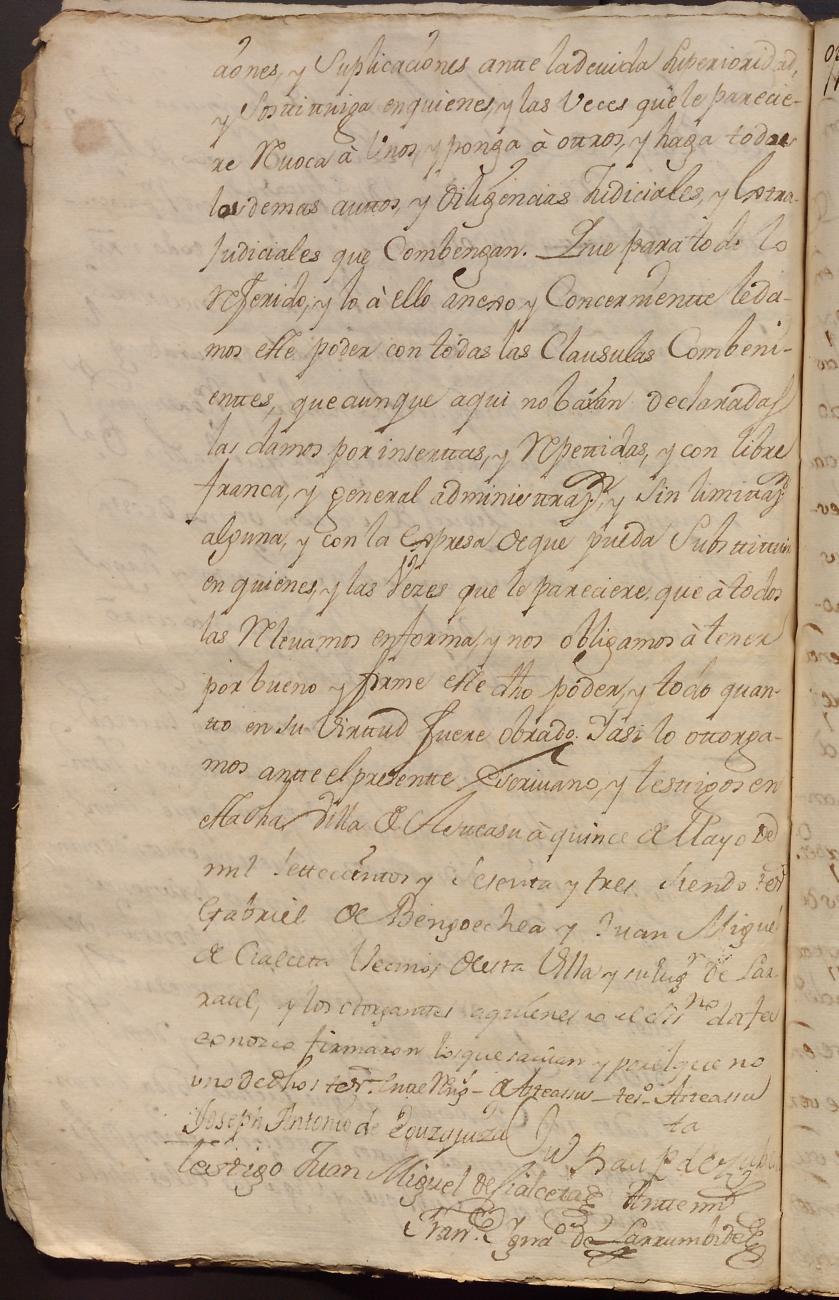 aciones, y Suplicaciones antte la devida Superioridad,
y Sosttittuiga en quienes, y las Veces que le parecie-
re Revoca à Unos, y ponga à ottros, y haga todas
las demas auttos, y diligencias Judiciales, y Extra-
Judiciales que Combengan. Que para todo lo
Referido, y lo à ello anexo y Concernientte le da-
mos este poder con todas las Clausulas Combeni-
enttes, que aunque aqui no baian declaradas
las damos por inserttas, y Repettidas, y con libre
franca, y general administtraz.n, y sin limittaz.n
alguna, y con la expresa de que pueda Substtittuir
en quienes, y las Vezes que le pareciere, que à todos
las Relevamos en forma, y nos obligamos à tener
por bueno y firme este dho poder, y todo quan-
tto en su Virttud fuere obrado. Y asi lo ottorga-
mos antte el presentte Escrivano, y testtigos en
esta dha Villa de Arteasu à quince de Mayo de
mil Settecienttos y Sesenta y tres siendo tes.
Gabriel de Bengoechea y Juan Miguel
de Cialceta Vecinos de esta Villa y su lug.r de Lar-
raul, y los otorgantes a quienes yo el ess.no doi fee
conozco firmaron los que sauian y por el que no
uno de dhos tes.
Joseph Antonio de
Testigo Juan Miguel de Cialceta Antte mi
Fran.co Igna.o de Larrumbide